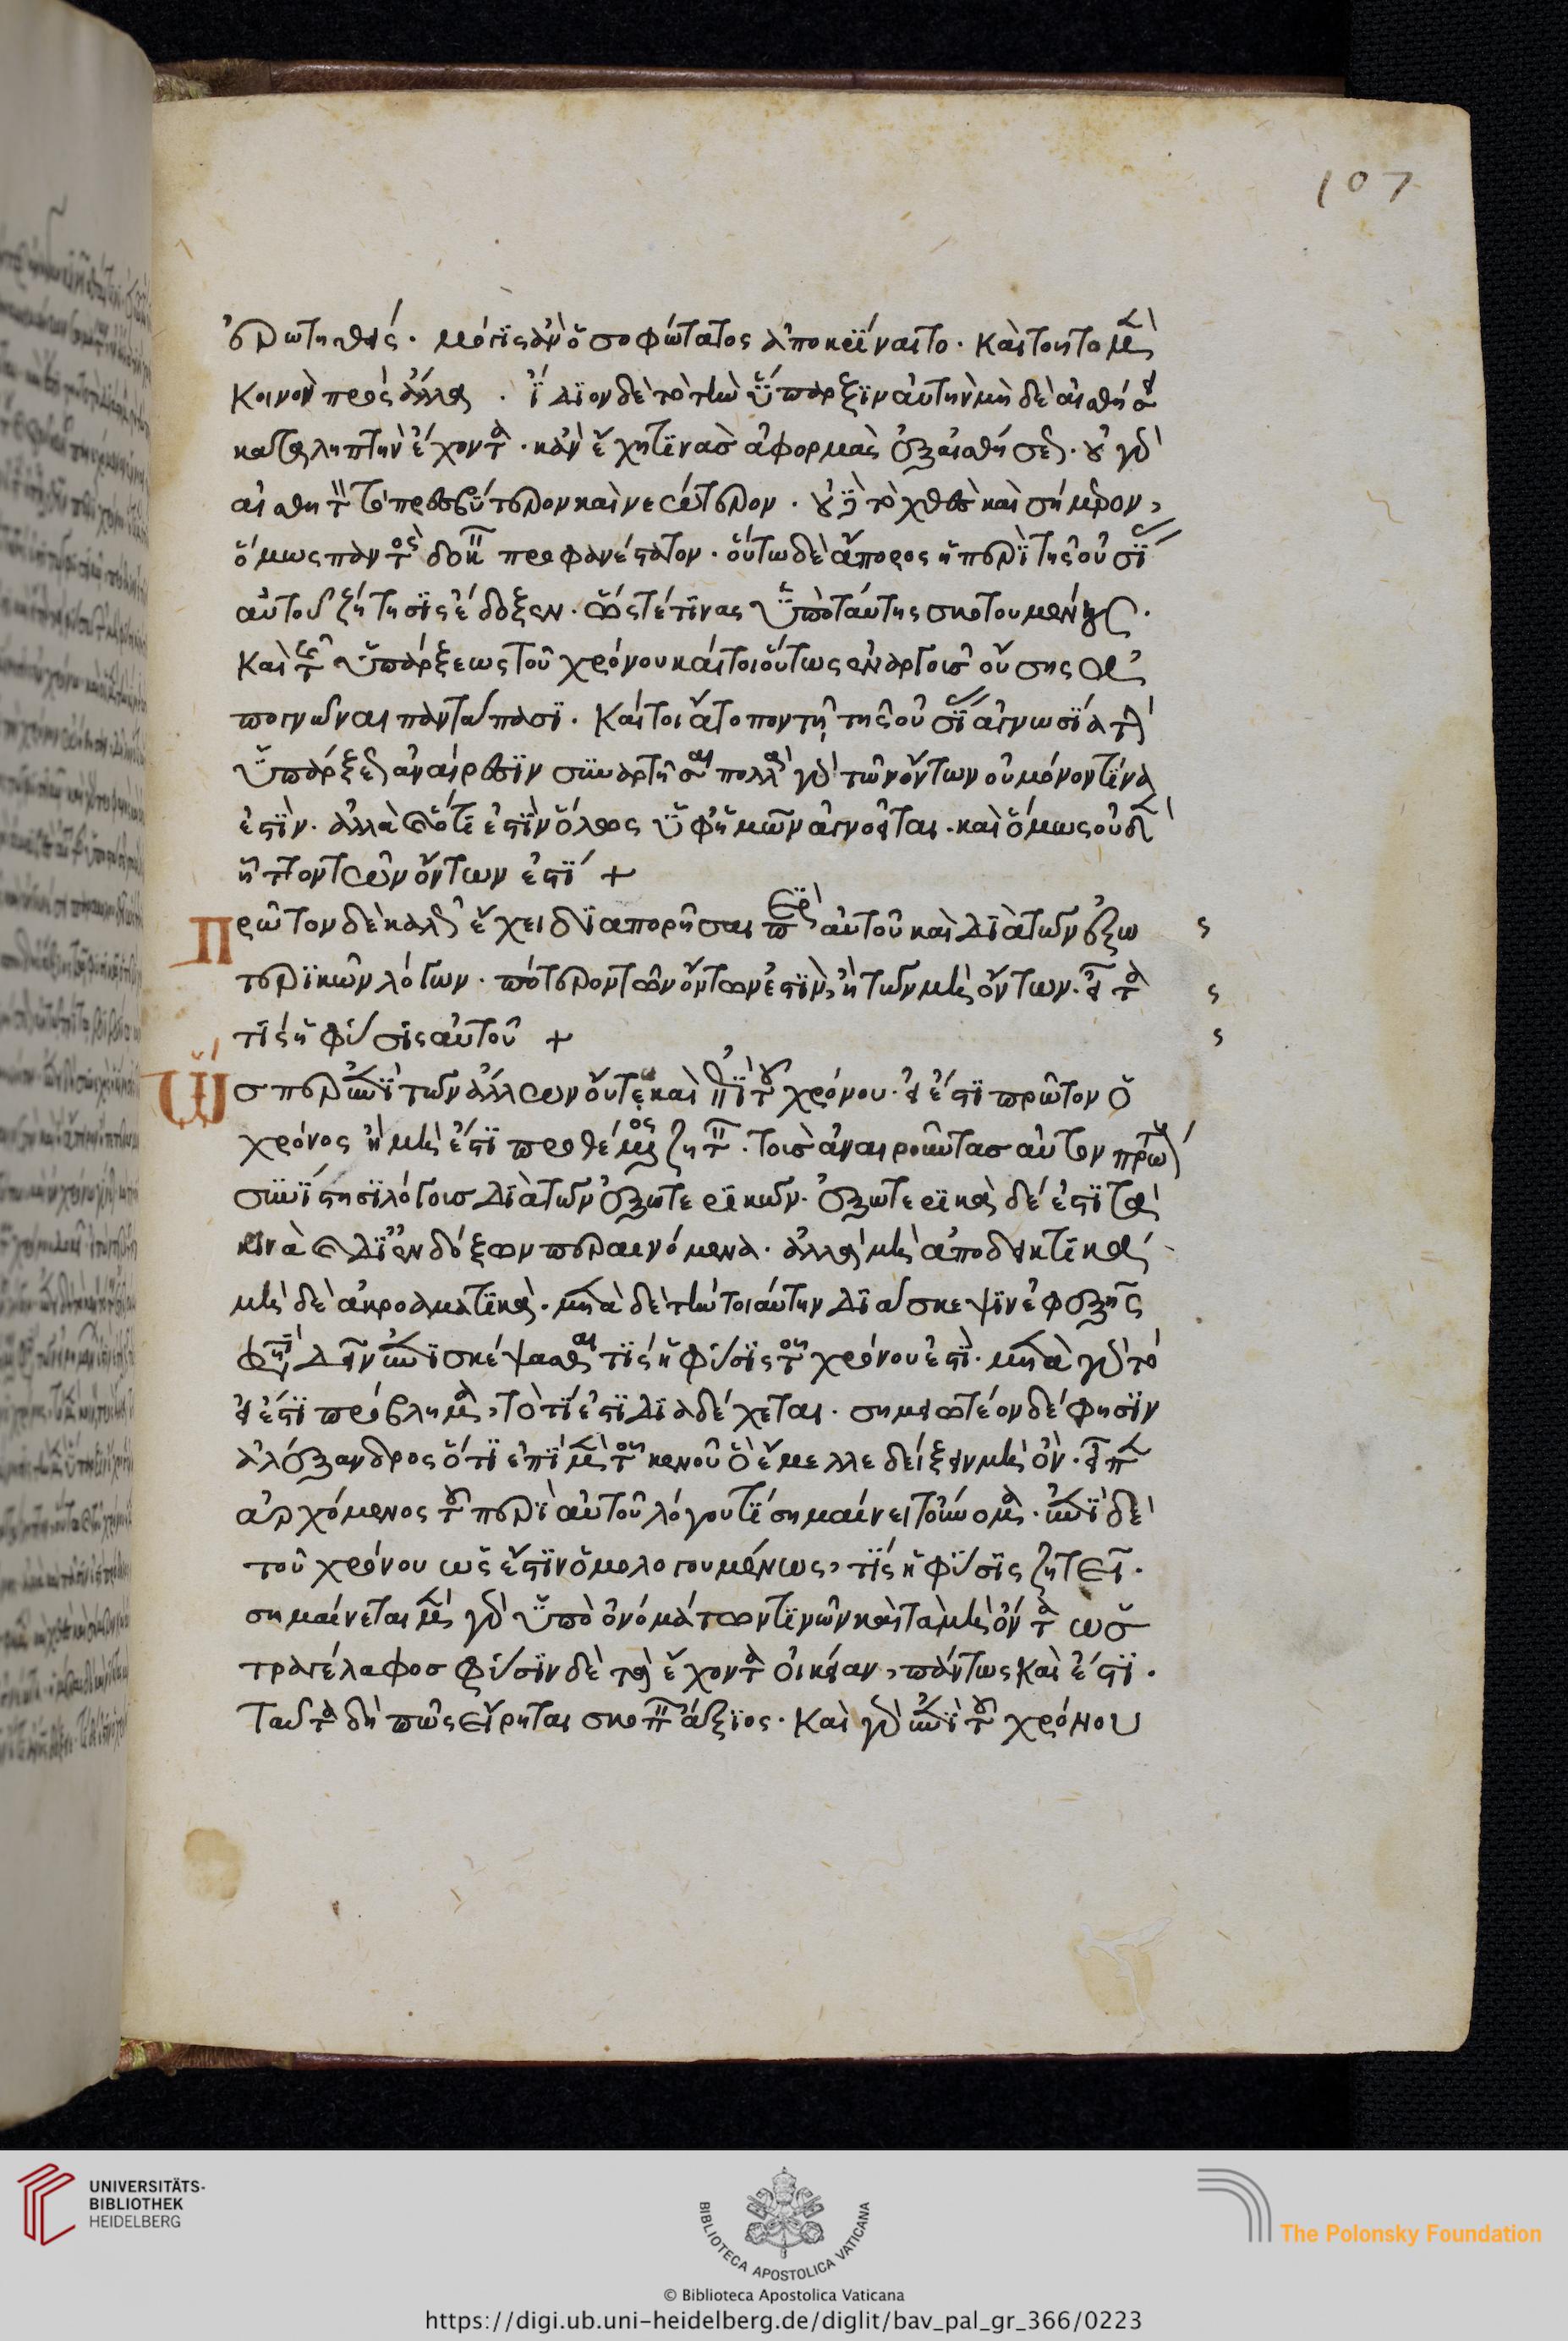 ἐρωτηθεὶς. μόγις ἂν ὁ σοφώτατος ἀποκρίναιτο. καὶ τοῦτο μὲν
κοινὸν πρὸς ἄλλα. ἴδιον δὲ τὸ τὴν ὕπαρξιν αὐτὴν μὴδὲ αἰσθήσει
καταληπτὴν ἔχοντα. κἂν ἔχη τινὰσ ἀφορμὰς ἐξαισθήσεως. οὐ γὰρ
αἰσθητὴ τὸ πρεσβύτερον καὶ νεώτερον. οὐδὲ τὸ χθὲσ καὶ σήμερον,
ὅμως παντὸς δοκεῖ προφανέστατον. οὕτω δὲ ἄπορος ἡ περὶ τῆς οὐσίας
αὐτοῦ ζήτησις ἔδοξεν. ὥστέ τινας ὑπὸ ταύτης σκοτουμένους.
καὶ τῆς ὑπάρξεως τοῦ χρόνου καίτοι οὕτως ἐναργοῦσ οὔσης ἀ
πογνῶναι παντάπασι. καίτοι ἄτοπον τῆ τῆς οὐσίας ἀγνωσία τὴν
ὑπάρξεως ἀναίρεσιν συναρτῆσαι πολλὰ γὰρ τῶν ὄντων οὐ μόνον τίνα
ἐστὶν. ἀλλὰ ὅτι ἐστὶν ὅλως ὑφ' ἡμῶν ἀγνοεῖται. καὶ ὅμως οὐδὲν
ἧττον τῶν ὄντων ἐστί +
Πρῶτον δὲ καλῶς ἔχει διαπορῆσαι περὶ αὐτοῦ καὶ διὰ τῶν ἐξω
τερικῶν λόγων. πότερον τῶν ὄντων ἐστὶν, ἢ τῶν μὴ ὄντων. εἶτα
τίς ἡ φύσις αὐτοῦ +
Ὥσπερ ἐπὶ τῶν ἄλλων οὕτε καὶ ἐπὶ τοῦ χρόνου. εἰ ἔστι πρῶτον ὁ
χρόνος ἢ μὴ ἔστι προθέμενος ζητεῖ. τοὺσ ἀναιροῦντασ αὐτὸν πρῶτον
συνίστησι λόγουσ διὰ τῶν ἐξωτερικῶν. ἐξωτερικὰ δέ ἐστι τὰ
κοινὰ καὶ δι' ἐνδόξων περαινόμενα. ἀλλὰ μὴ ἀποδεικτικὰ
μὴ δὲ ἀκροαματικὰ. μετὰ δὲ τὴν τοιαύτην διάσκεψιν ἐφεξῆς
φησὶ δεῖν ἐπισκέψασθαι τίς ἡ φύσις τοῦ χρόνου ἐστὶ. μετὰ γὰρ τὸ
εἰ ἔστι πρόβλημα, τὸ τί ἐστι διαδέχεται. σημειωτέον δέ φησιν
ἀλέξανδρος ὅτι ἐπὶ μὲν τοῦ κενοῦ ὃ ἔμελλε δείξειν μὴ ὂν. εἶπεν
ἀρχόμενος τοῦ περὶ αὐτοῦ λόγου τί σημαίνει τοὔνομα. ἐπὶ δὲ
τοῦ χρόνου ὡς ἔστιν ὁμολογουμένως, τίς ἡ φύσις ζητεῖ.
σημαίνεται μὲν γὰρ ὑπὸ ὀνομάτων τινῶν καὶ τὰ μὴ ὄντα ὡς
τραγέλαφοσ φύσιν δὲ τὰ ἔχοντα οἰκείαν, πάντως καὶ ἔστι.
ταῦτα δὴ πῶς εἴρηται σκοπεῖν ἄξιος. καὶ γὰρ ἐπὶ τοῦ χρόνου
107
UNIVERSITÄTS-
BIBLIOTHEK
HEIDELBERG
BIBLIOTECA APOSTOLICA VATICANA
© Biblioteca Apostolica Vaticana
The Polonsky Foundation
https://digi.ub.uni-heidelberg.de/diglit/bav_pal_gr_366/0223